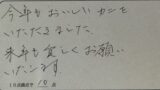 今年もおいしいカニを
いただきました。
来年も宜しくお願い
いたします